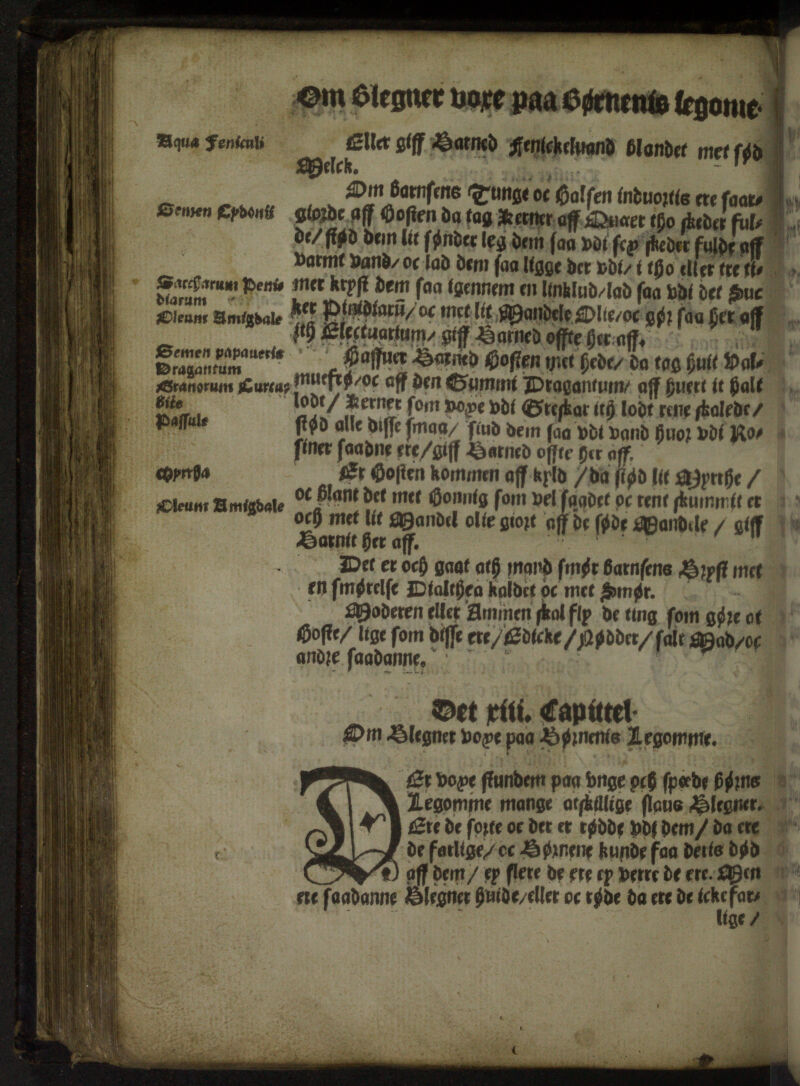 Om Blegner vore paa Børnenis legome
Aqua Feniculi
Eller giff Barned Fenickeluand blandet met sød
Melck.
Om Barnsens Tunge oc Halsen induortis ere saar⸗
Semen Cydonij
giorde aff Hosten da tag Kerner aff Quaet tho skeder ful⸗
de/ stød dem lit sønder leg dem saa vdi sex skeder fulde aff
varmt vand/ oc lad dem saa ligge der vdi/ i tho eller tre ti⸗
Saccharum Peni⸗
diarum
mer kryst dem saa igennem en linklud/lad saa vdi det Suc
Oleum Amigdale
ker Pinidiarū/ oc met lit Mandele Olie/oc gør saa her aff
itħ Electuarium/ giff Barned offte her aff.
Semen papaueris
Dragantum
Haffuer Barned Hosten met hede/ da tag huit Val⸗
Granorum Curcur
bite
muefrø/oc aff den Gummi Dragantum/ aff huert it halt
Passule
lodt/ Kerner som voxe vdi Greskar itħ lodt rene skalede/
stød alle disse smaa/ siud dem saa vdi vand huor vdi Ro⸗
siner saadne ere/giff Barned offte her aff.
Myrrha
Er Hosten kommen aff kyld /da stød lit Myrrhe /
Oleum Amigdale
oc bland det met Honnig som vel saadet oc rent skummit er
och met lit Mandel olie giort aff de søde Mandele / giff
Barnit her aff.
Det er och gaat ath mand smør Barnsens Bryst met
en smørelse Dialthea kaldet oc met Smør.
Moderen eller Ammen skal fly de ting som gøre at
Hoste/ lige som disse ere/Edicke/Nødder/ salt Mad/oc
andre saadanne.
Det xiii. Capittel
Om Blegner voxe paa Børnenis Legomme.
Er voxe stundem paa vnge och spæde børns
Legomme mange atskillige slaus Blegner.
Ere de sorte oc der er rødde vdi dem/ da ere
de farlige/ oc Børnene kunde faa deris død
aff dem/ ey flere de ere ey verre de ere. Men
ere saadanne Blegner huide/eller oc røde da ere de icke far⸗
lige /